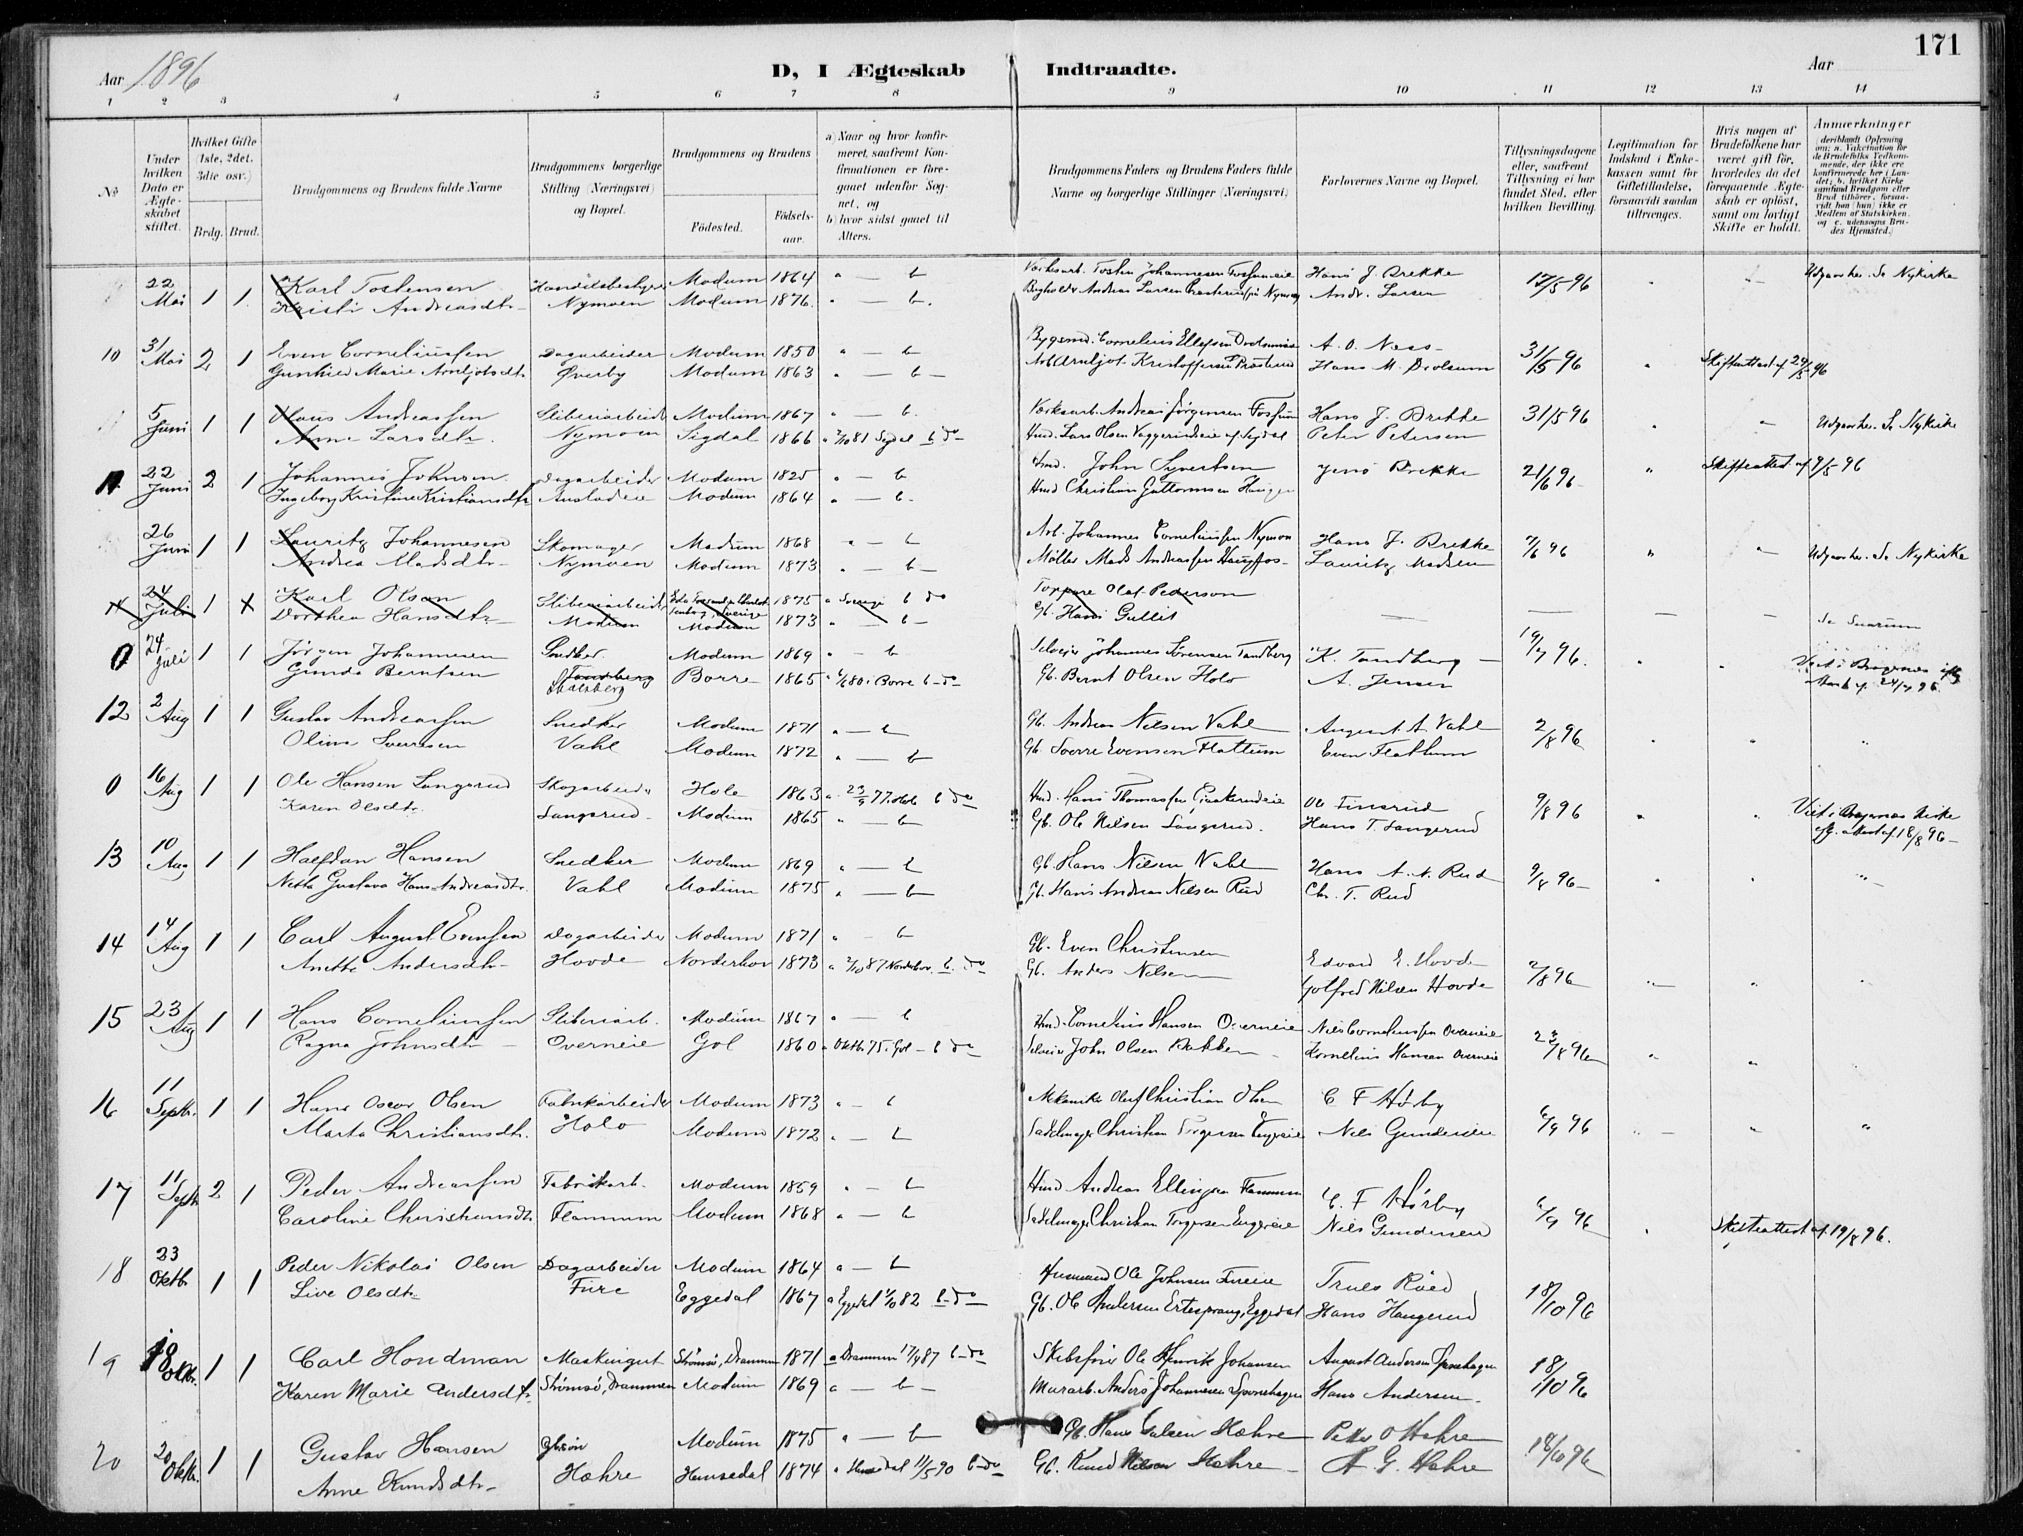 171
Aar 1896
D, I Ægteskab Indtraadte.
Aar
1 2 3 4 5 6 7 8 9 10 11 12 13 14
No
Under hvilken Dato er Ægteskabet stiftet.
Hvilket Gifte (1ste, 2det, 3die osv.)
Brdg. Brud.
Brudgommens og Brudens fulde Navne
Brudgommens borgerlige Stilling (Næringsvei) og Bopæl.
Brudgommens og Brudens
Födested.
Födsels-aar.
a) Naar og hvor konfirmeret, saafremt Konfirmationen er foregaaet udenfor Sognet, og
b) hvor sidst gaaet til Alters.
Brudgommens Faders og Brudens Faders fulde Navne og borgerlige Stillinger (Næringsvei)
Forlovernes Navne og Bopæl.
Tillysningsdagene eller, saafremt Tillysning ei har fundet Sted, efter hvilken Bevilling.
Legitimation for Indskud i Enkekassen samt for Giftetilladelse, forsaavidt saadan tiltrænges.
Hvis nogen af Brudefolkene har været gift før, hvorledes da det foregaaende Ægteskab er opløst, samt om lovligt Skifte er holdt.
Anmærkninger
(deriblandt Oplysning om: a. Vakcination for de Brudefolks Vedkommende, der ikke ere konfirmerede her i Landet; b. hvilket Kirkesamfund Brudgom eller Brud tilhører, forsaavidt han (hun) ikke er Medlem af Statskirken, og c. udensogns Brudes Hjemsted.)
22 Mai 1 1 Karl Tostensen Handelsbestyrer Modum 1864 a — b Hans J. Brekke 17/5 96 Udgaar her. Se Nykirke
Kristi Andreasdtr Nymoen Modum 1876 " — b. Andr. Larsen
10 31 Mai 2 1 Even Corneliussen Dagarbeider Modum 1850 a b A. O. Ness 31/5 96 Skifteattest af 29/5 96
Gunhild Marie Arntjotsdtr Øverby Modum 1863 a — b — Hans M. Drolsum
5 Juni 1 1 Claus Andreassen Sliberiarbeider Modum 1867 a — b. Værksarb. Andreas Jørgensen Fossum Hans J. Brekke 31/5 96 Udgaar her. Se Nykirke
Anne Larsdtr. Nymoen Sigdal 1866 a 2/10 81 Sigdal b do Peter Petersen
11 22 Juni 2 1 Johannes Johnsen Dagarbeider Modum 1825 a — b Hmd. John Syvertsen Jens Brekke 21/6 96 Skifteattest af 9/5 96
Ingeborg Kristine Kristiansdtr Modum 1864 a — b. Hmd Christian Guttormsen Haugen
26 Juni 1 1 Lauritz Johannesen Skomager Modum 1868 a — b Arb. Johannes Corneliussen Nymoen Hans J. Brekke 7/6 96 Udgaar her. Se Nykirke
Andrea Madsdtr Nymoen Modum 1873 a — b — Møller Mads Andreassen Haugfos Lauritz Madsen
14 24 Juli 1 Karl Olsen Sliberiarbeider 1875 a Sverige b do Olof Pederson
Dorthea Hansdtr Modum Modum 1873 a — b — Gb. Hans Gullit Se Snarum
0 24 Juli 1 1 Jørgen Johannesen Snedker Modum 1869 a — b Selveier Johannes Sørensen Tandberg K. Tandberg 19/7 96.
Gunda Berntsen Tandberg Borre 1865 Borre b do Gb. Bernt Olsen Holo A. Jensen Attest af 24/7 96.
12 2 Aug 1 1 Gustav Andreassen Snedker Modum 1871 a — b Gb. Andreas Nilsen Vahl August A. Vahl 2/8 96
Oline Sverresen Vahl Modum 1872 a — b Gb. Sverre Evensen Flattum Even Flathum
0 16 Aug 1 1 Ole Hansen Langerud Skogarbeider Hole 1863 a 23/9 77. Hole b do Hmd. Hans Thomassen 9/8 96
Karen Olsdtr. Langerud Modum 1865 a — b Gb. Ole Nilsen Langerud. Hans T. Langerud Attest af 18/8 96 —
13 10 Aug 1 1 Halfdan Hansen Snedker Modum 1869 a — b Gb. Hans Nilsen Vahl Hans A. N. Rud 9/8 96 —
Netta Gustava Hans-Andreasdtr. Vahl Modum 1875 a — b Gb. Hans Andreas Nilsen Rud Chr. T. Rud
14 14 Aug 1 1 Carl August Evensen Dagarbeider Modum 1871 a — b Gb. Even Christensen Edvard E. Hovde 2/8 96
Anette Andersdtr Hovde Norderhov 1873 a 2/10 87 Norderhov. b. do Gb. Anders Nilsen Golfred Nilsen Hovde
15 23 Aug 1 1 Hans Corneliussen Sliberiarb. Modum 1867 a — b Hmd. Cornelius Hansen Overneie Nils Corneliussen Overneie 23/8 96
Ragna Johnsdtr Overneie Gol 1860 a Oktbr 75. Gol — b do Selveier John Olsen Bakken Kornelius Hansen Overneie
16 11 Septbr. 1 1 Hans Oscar Olsen Fabrikarbeider Modum 1873 a — b Mekaniker Oluf Christian Olsen C F Hørby 6/9 96
Marta Christiansdtr. Holo Modum 1872 a — b Sadelmager Christian Torgersen Engereie Nils Gundersen
17 11 Septbr 2 1 Peder Andreassen Fabrikarb. Modum 1859 a — b Hmd Andreas Ellingsen Flammum C. F Hørby 6/9 96 Skifteattest af. 19/8 96.
Caroline Christiansdtr Flammum Modum 1868 a — b Sadelmager Christian Torgersen Engereie Nils Gundersen
18 23 Oktbr 1 1 Peder Nikolai Olsen Dagarbeider Modum 1864 a — b Husmand Ole Johnsen Fureie Truls Røed 18/10 96
Live Olsdtr Fure Eggedal 1867 a Eggedal 1/10 82 b do Gb. Ole Andersen Ertesprang, Eggedal Hans Haugerud
19 18 Oktbr. 1 1 Carl Hondman Maskingut Strømsø, Drammen 1871 a Drammen 17/4 87 b do Skibsfører Ole Henrik Johansen August Andersen Sponehagen 18/10 96
Karen Marie Andersdtr. Strømsø, Drammen Modum 1869 a — b — Murarb. Anders Johannesen Sponehagen Hans Andersen.
20 20 Oktbr. 1 1 Gustav Hansen Gbsøn Modum 1875 a — b Gb. Hans Hæhre Peder O Hæhre 18/10 96
Anne Knudsdtr Hæhre Hemsedal 1874 a Hemsedal 11/5 90 b do Gb. Knud Nilsen Hæhre A. G. Hæhre